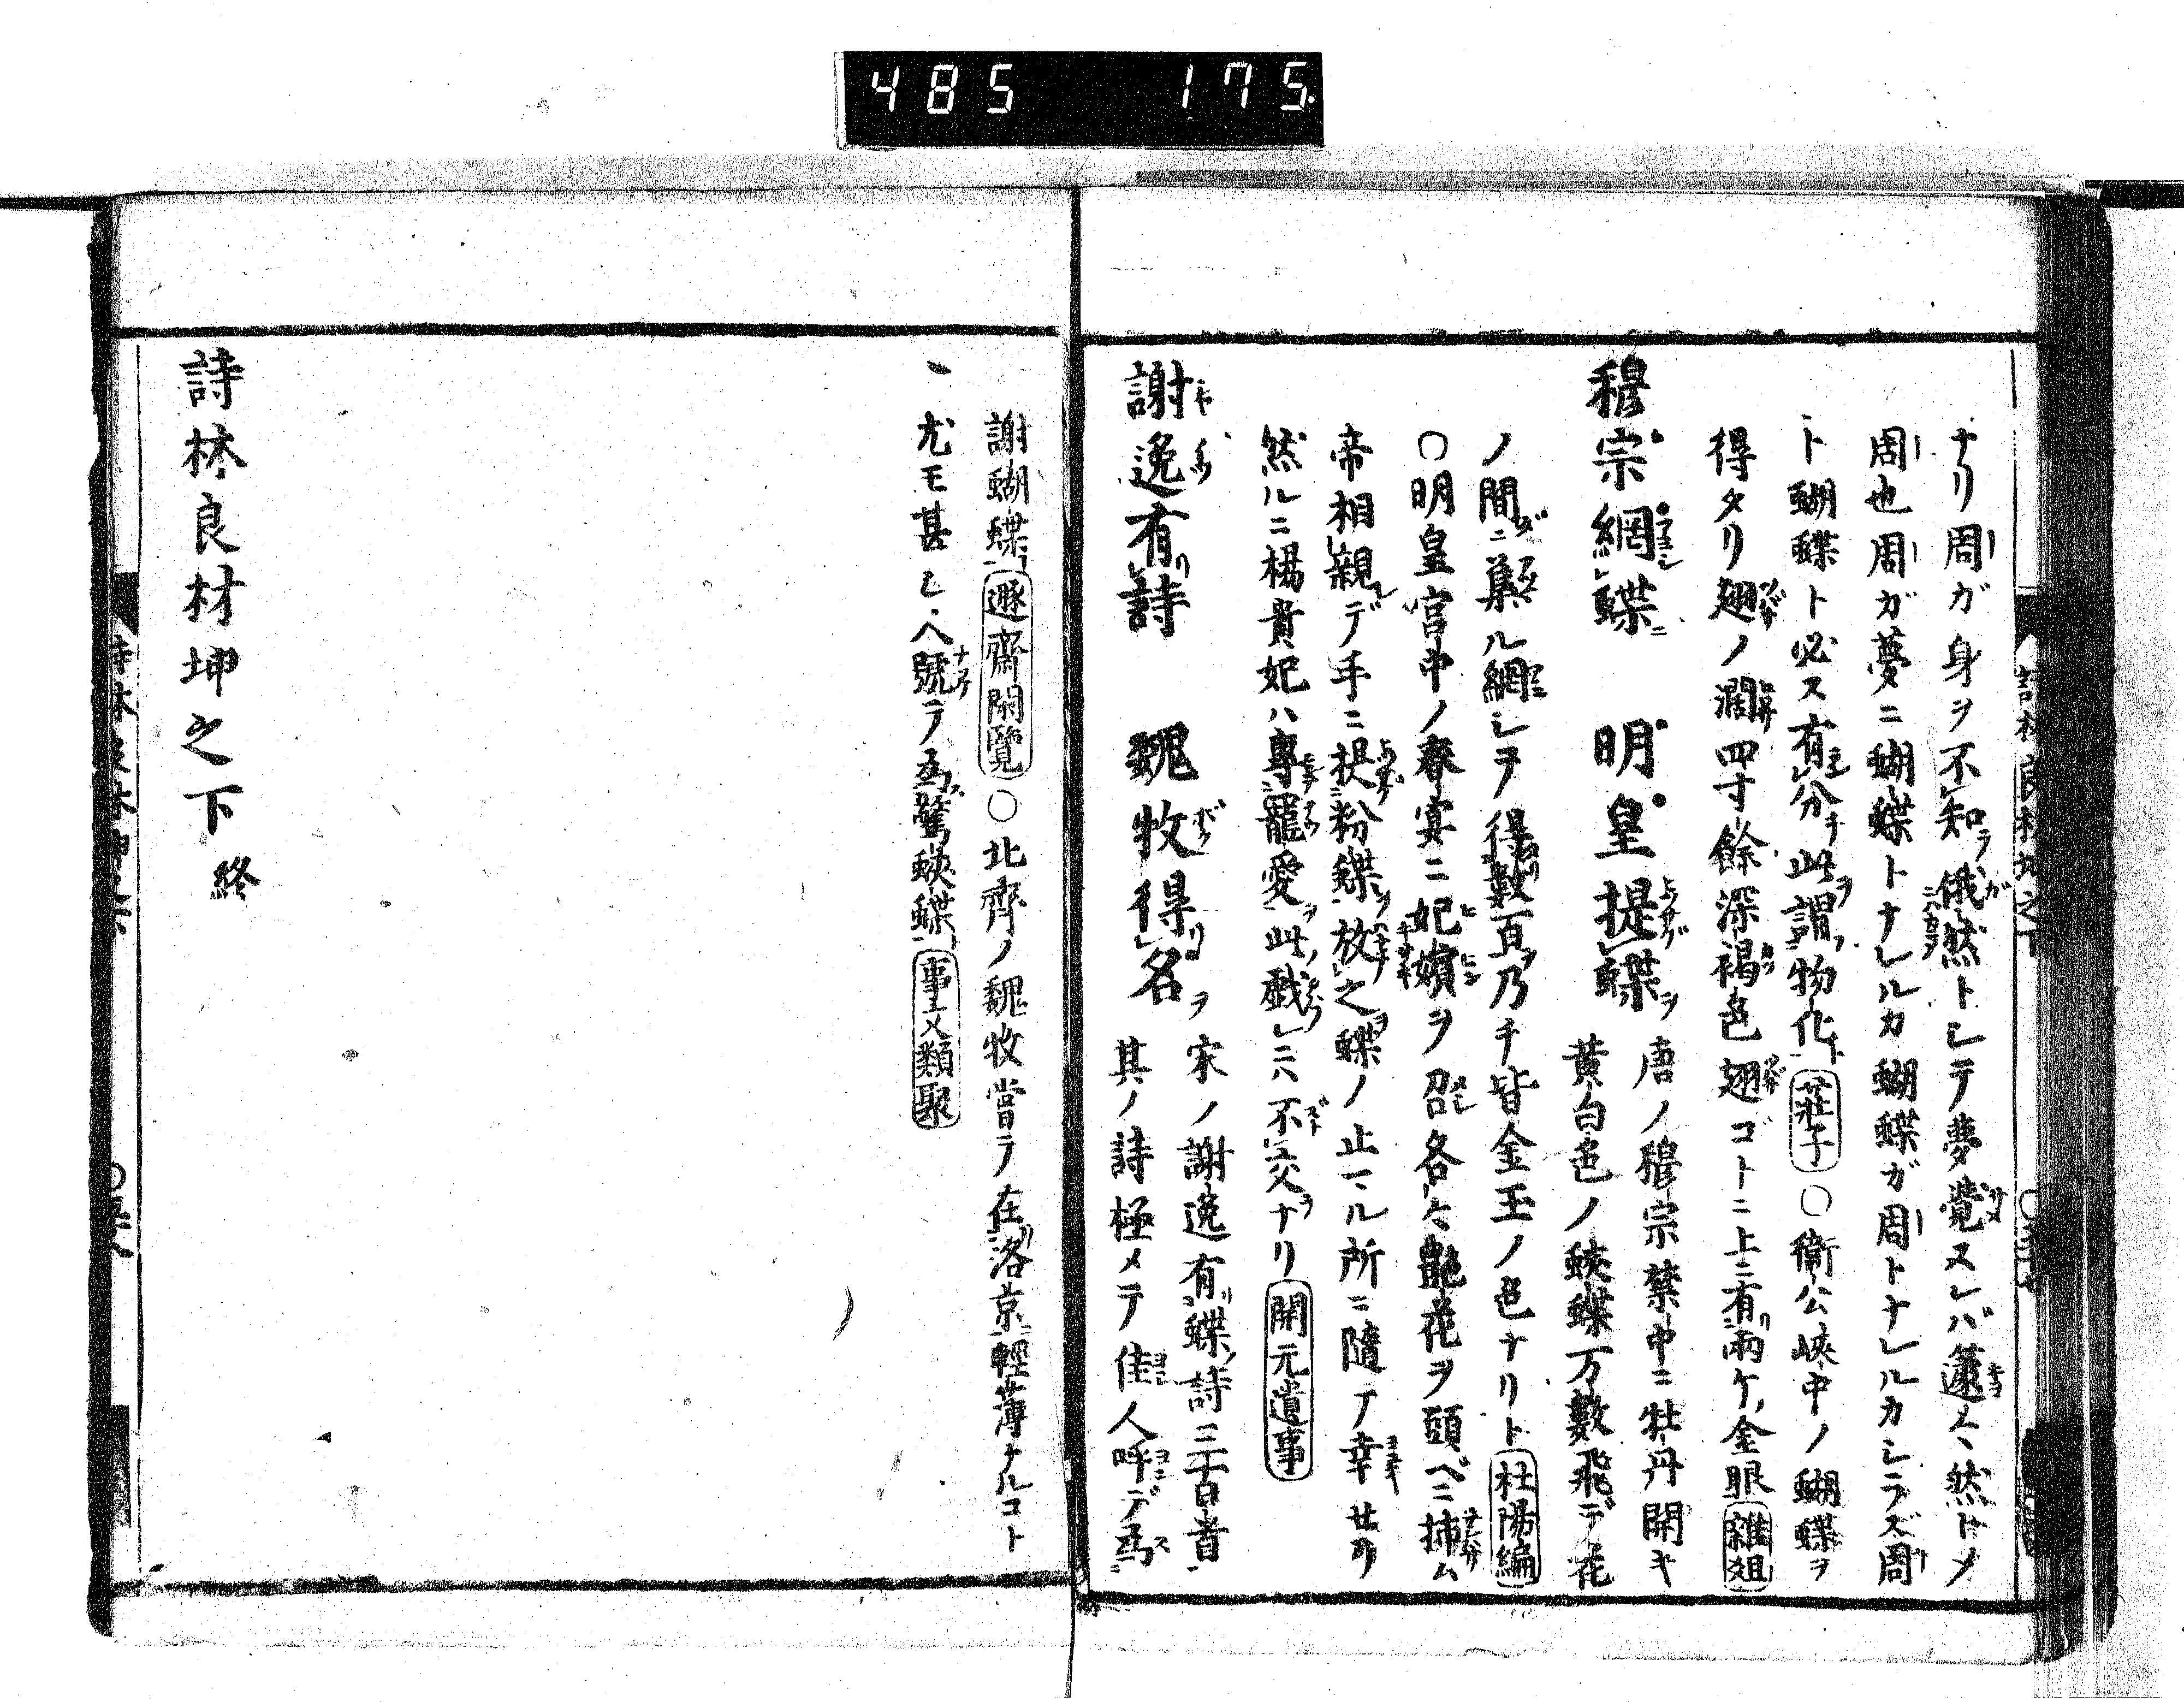 485 175.
ナリ周ガ身ヲ不知ラ俄然トシテ夢覺ヌレバ蘧々然トメ
周也周ガ夢ニ蝴蝶トナレルカ蝴蝶ガ周トナレルカシラズ周
ト蝴蝶ト必ス有分チ此ヲ謂フ物化ト莊子〇衞公峽中ノ蝴蝶ヲ
得タリ翅ノ濶四寸餘深褐色翅ゴトニ上ニ有リ兩ケノ金眼雜俎
穆宗網蝶ニ 明皇提蝶ヲ
唐ノ穆宗禁中ニ牡丹開キ
黄白色ノ蛺蝶万數飛デ花
ノ間ニ集ル網シヲ得數百ヲ乃チ皆金玉ノ色ナリト杜陽編
〇明皇宮中ノ春宴ニ妃嬪ヲ召シ各々艶花ヲ頭ベニ挿ム
帝相親デ手ニ提粉蝶ヲ放之ヲ蝶ノ止マル所ニ隨ア幸せリ
然ルニ楊貴妃ハ專ニ寵愛ヲ此ノ戯レニハ不交ヲナリ開元遺事
謝逸有リ詩 魏牧得名ヲ
宋ノ謝逸有リ蝶ノ詩三百首
其ノ詩極メテ佳人呼デ爲ス
謝蝴蝶ト遯齋閑覽〇北齊ノ魏牧嘗テ在リ洛京ニ輕薄ナルコト
尤モ甚シ人號テ爲ス驚蛺蝶ト事文類聚
詩林良材坤之下終